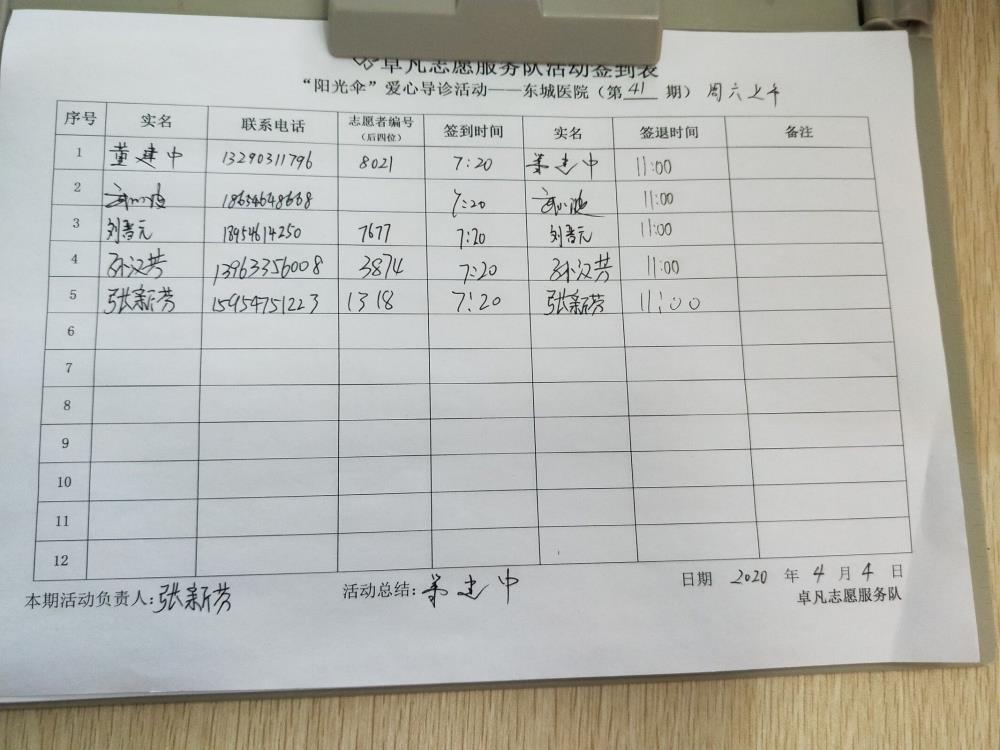 卓凡志愿服务队活动签到表
“阳光伞”爱心导诊活动——东城医院（第41期）周六上午
序号 实名 联系电话 志愿者编号（后四位） 签到时间 实名 签退时间 备注
1 董建中 13290311796 8021 7:20 董建中 11:00
2 18654648668 7:20 11:00
3 刘善元 13954614250 7677 7:20 刘善元 11:00
4 孙汉芳 13963356008 3874 7:20 孙汉芳 11:00
5 张新芳 15954751223 1318 7:20 张新芳 11:00
6
7
8
9
10
11
12
本期活动负责人：张新芳 活动总结：董建中 日期 2020年4月4日
卓凡志愿服务队